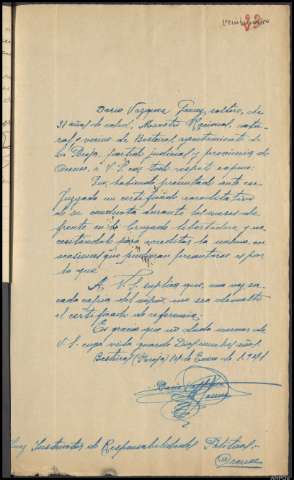 23
Dario Vazquez Gomez, soltero, de
31 años de edad, Maestro Nacional, natu-
ral y vecino de Besteiros, ayuntamiento de
La Peroja, partido judicial y provincia de
Orense, a V.S. con todo respeto expone:
Que habiendo presentado ante ese
Juzgado un certificado acreditativo
de su conducta durante los meses de
frente en la cruzada libertadora y ne-
cesitándolo para acreditar la misma en
ocasiones que pudieran presentarse es por
lo que
A V.S. suplica que, una vez sa-
cada copia del mismo, me sea devuelto
el certificado de referencia.
Es gracia que no duda merecer de
V.S. cuya vida guarde Dios muchos años
Besteiros (Peroja) de Enero de 1.941
Dario Vazquez
Gomez
Sr. Juez Instructor de Responsabilidades Politicas.-
Orense